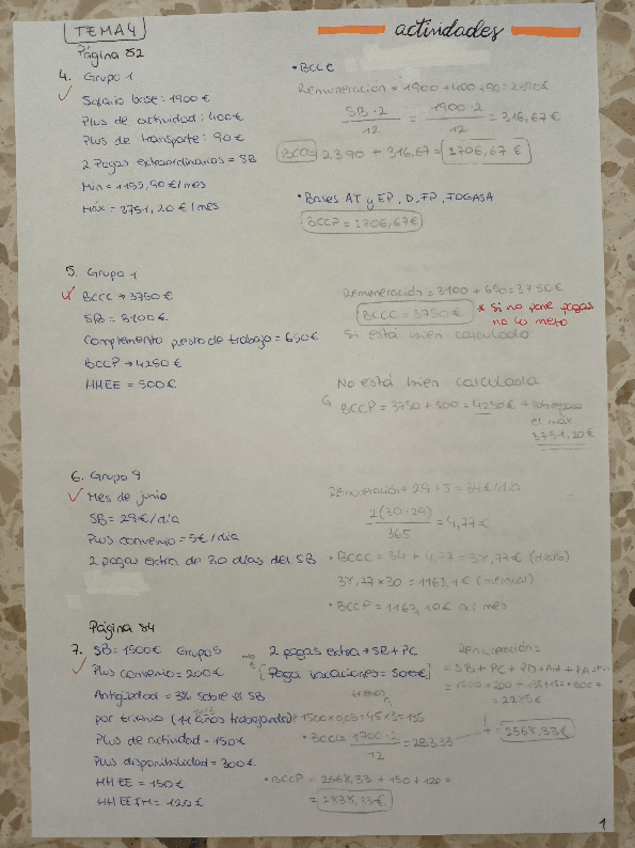 TEMA 4
actividades
Página 82
4. Grupo 1
Salario base: 1900€
Plus de actividad: 400€
Plus de transporte: 90€
2 Pagas extraordinarias = SB
Máx = 3751,20€/mes
• BCCC
Remuneración = 1900 + 400 + 90 = 2390€
SB·2 / 12 = 1900·2 / 12 = 316,67€
2390 + 316,67 = 2706,67€
• Bases AT y EP, D, FP, FOGASA
BCCP = 2706,67€
5. Grupo 1
BCCC → 3750€
SB = 3100€
Complemento puesto de trabajo = 650€
BCCP → 4250€
HHEE = 500€
Remuneración = 3100 + 650 = 3750€
BCCC = 3750€
* Si no pone pagas
no lo meto
Si está bien calculado
No está bien calculada
BCCP = 3750 + 500 = 4250€ → sobrepasa
el máx
3751,20€
6. Grupo 9
Mes de junio
SB = 29€/día
Plus convenio = 5€/día
2 pagas extra de 30 días del SB
Remuneración = 29 + 5 = 34€/día
2(30·29) / 365 = 4,77€
• BCCC = 34 + 4,77 = 38,77€ (diario)
38,77 × 30 = 1163,1€ (mensual)
• BCCP = 1163,10€ al mes
Página 84
7. SB = 1500€ Grupo 5
Plus convenio = 200€
Antigüedad = 3% sobre el SB
por trienio (11 años trabajando) = 1500×0,03 = 45×3 = 135
Plus de actividad = 150€
Plus disponibilidad = 300€
HHEE = 150€
HHEEFM = 120€
2 pagas extra → SB + PC
[Paga vacaciones = 500€]
• BCCC 1700·2 / 12 = 283,33
• BCCP = 2568,33 + 150 + 120 =
= 2838,33€
Remuneración =
= SB + PC + PD + Ant +
= 2285€
= 2568,33€
1